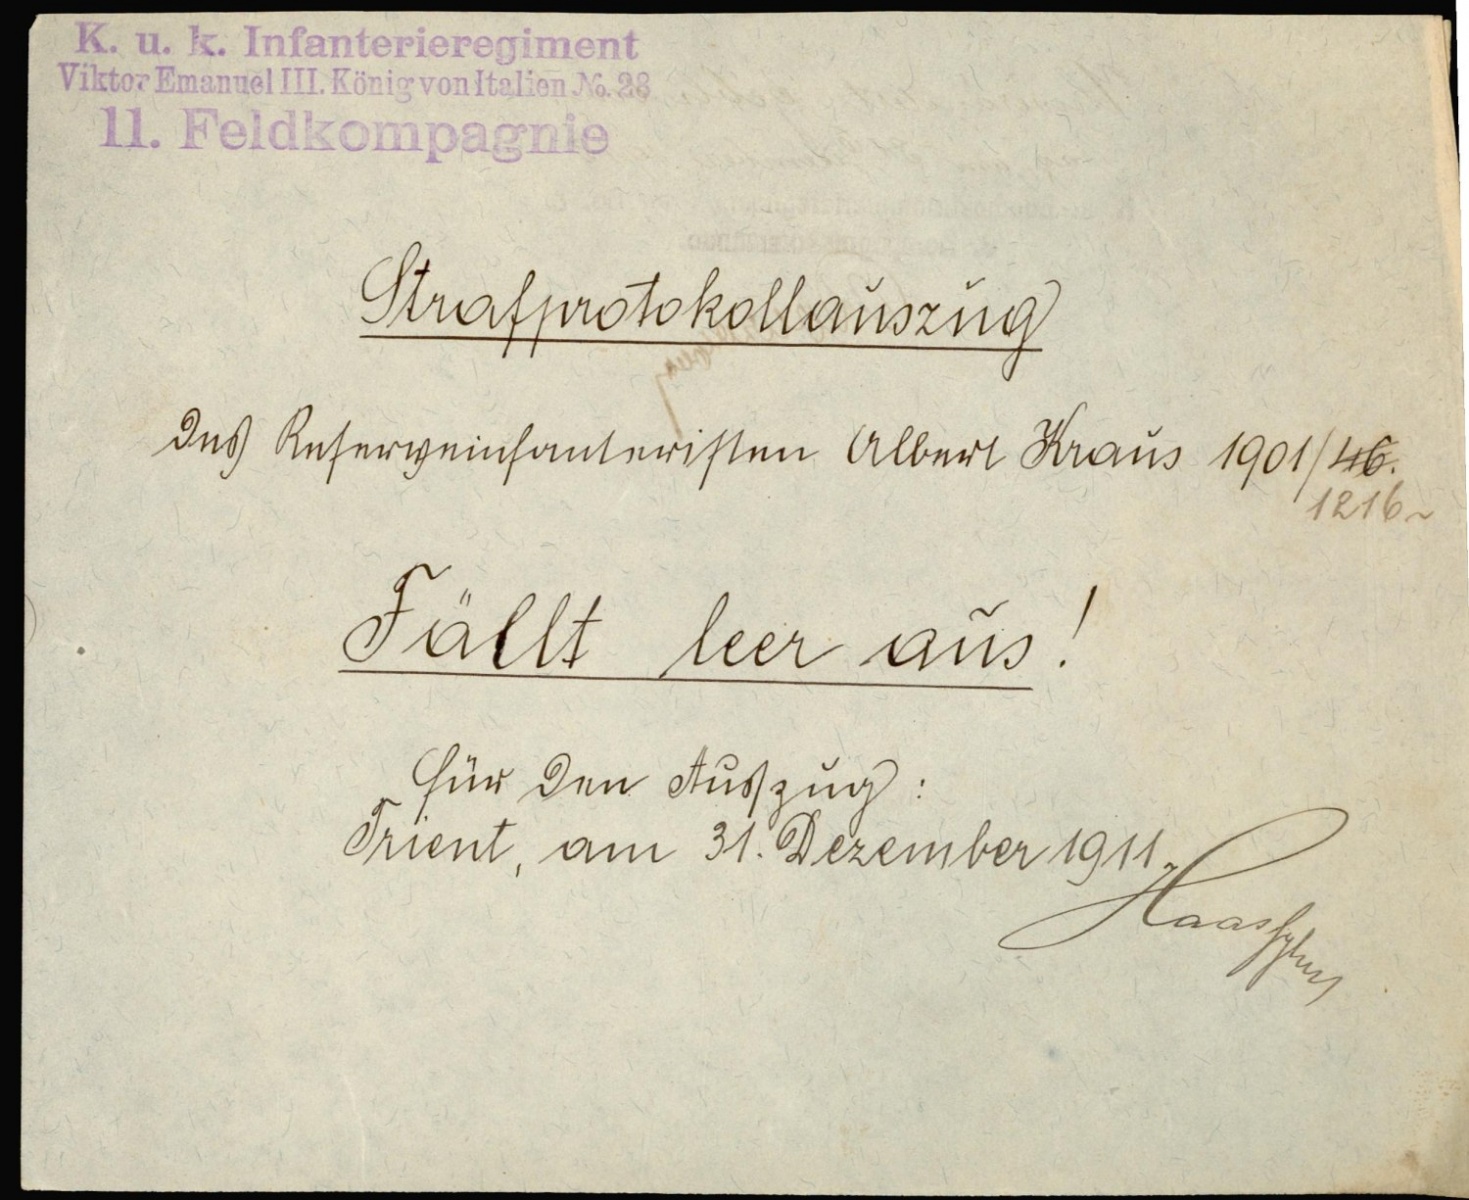 K. u. k. Infanterieregiment
Viktor Emanuel III. König von Italien No. 28
11. Feldkompagnie
Strafprotokollauszug
des Reserveinfanteristen Albert Kraus 1901/46.
1216
Fällt leer aus!
Für den Auszug:
Trient, am 31. Dezember 1911.